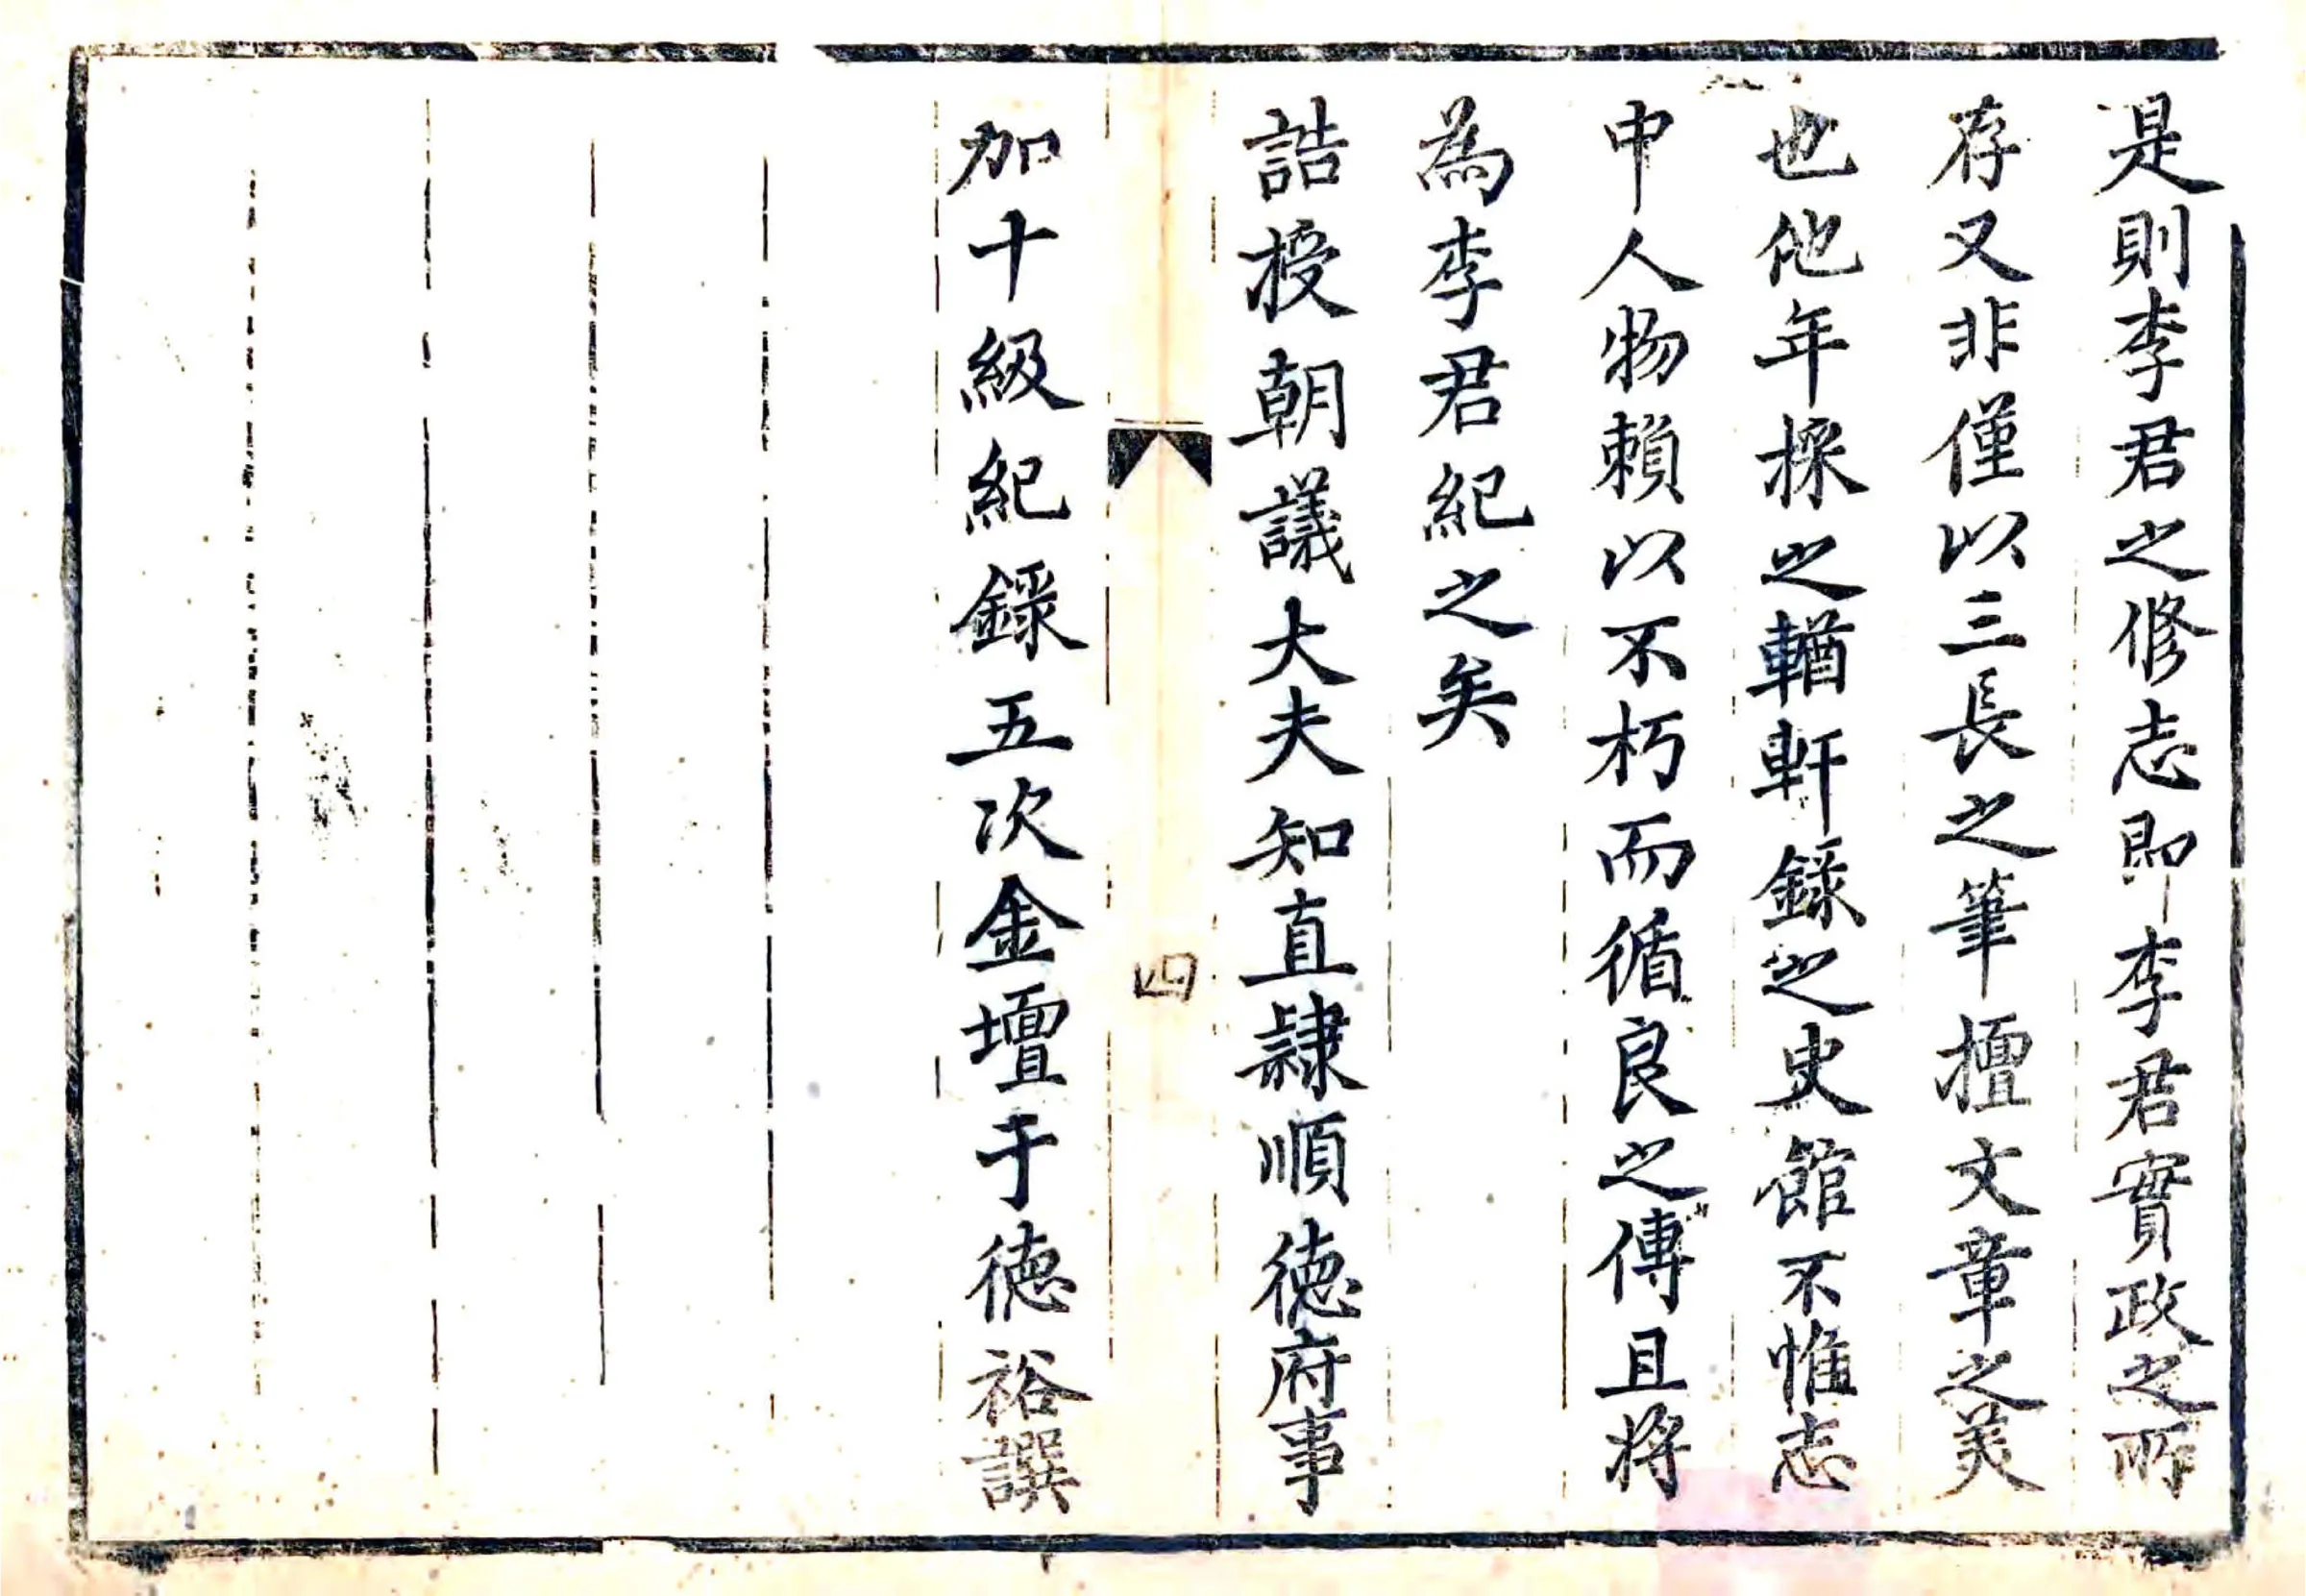 是則李君之修志即李君實政之所
存又非僅以三長之筆擅文章之美
也他年採之輶軒錄之史館不惟志
中人物賴以不朽而循良之傳且將
為李君紀之矣
誥授朝議大夫知直隸順德府事
四
加十級紀錄五次金壇于德裕譔